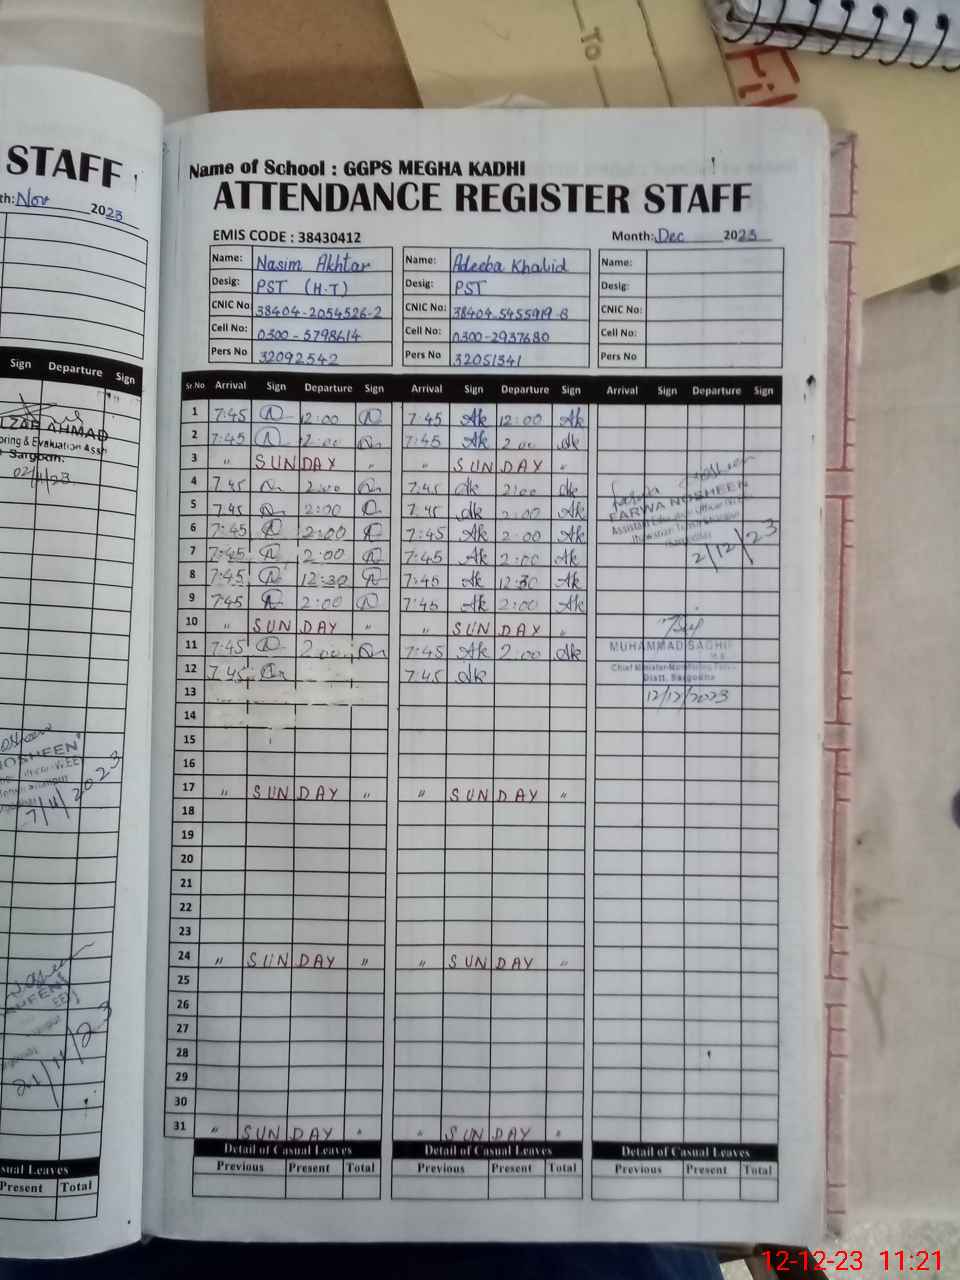 To
Fil
STAFF
th: Nov 2023
Sign Departure Sign
ZAR AHMAD
oring & Evaluation Asstt
Sargodh
02/11/23
NOSHEEN
7/11/2023
21/11/23
sual Leaves
Present Total
Name of School : GGPS MEGHA KADHI
ATTENDANCE REGISTER STAFF
EMIS CODE : 38430412 Month: Dec 2023
Name: Nasim Akhtar Name: Adeeba Khalid Name:
Desig: PST (H.T) Desig: PST Desig:
CNIC No: 38404-2054526-2 CNIC No: 38404-5455919-8 CNIC No:
Cell No: 0300-5798614 Cell No: 0300-2937680 Cell No:
Pers No 32092542 Pers No 32051341 Pers No
Sr No Arrival Sign Departure Sign Arrival Sign Departure Sign Arrival Sign Departure Sign
1 7:45 12:00 7:45 Ak 12:00 Ak
2 7:45 2:00 7:45 Ak 2:00 Ak
3 " SUNDAY " " SUNDAY "
4 7:45 2:00 7:45 Ak 2:00 Ak
5 7:45 2:00 7:45 Ak 2:00 Ak
6 7:45 2:00 7:45 Ak 2:00 Ak
7 7:45 2:00 7:45 Ak 2:00 Ak
8 7:45 12:30 7:45 Ak 12:30 Ak
9 7:45 2:00 7:45 Ak 2:00 Ak
10 " SUNDAY " " SUNDAY "
11 7:45 2:00 7:45 Ak 2:00 Ak
12 7:45 7:45 Ak
13
14
15
16
17 " SUNDAY " " SUNDAY "
18
19
20
21
22
23
24 " SUNDAY " " SUNDAY "
25
26
27
28
29
30
31 " SUNDAY " " SUNDAY "
FARWA NOSHEEN
2/12/23
MUHAMMAD SAGHI
Chief Minister Monitoring
Distt. Sargodha
12/12/2023
Detail of Casual Leaves Detail of Casual Leaves Detail of Casual Leaves
Previous Present Total Previous Present Total Previous Present Total
12-12-23 11:21